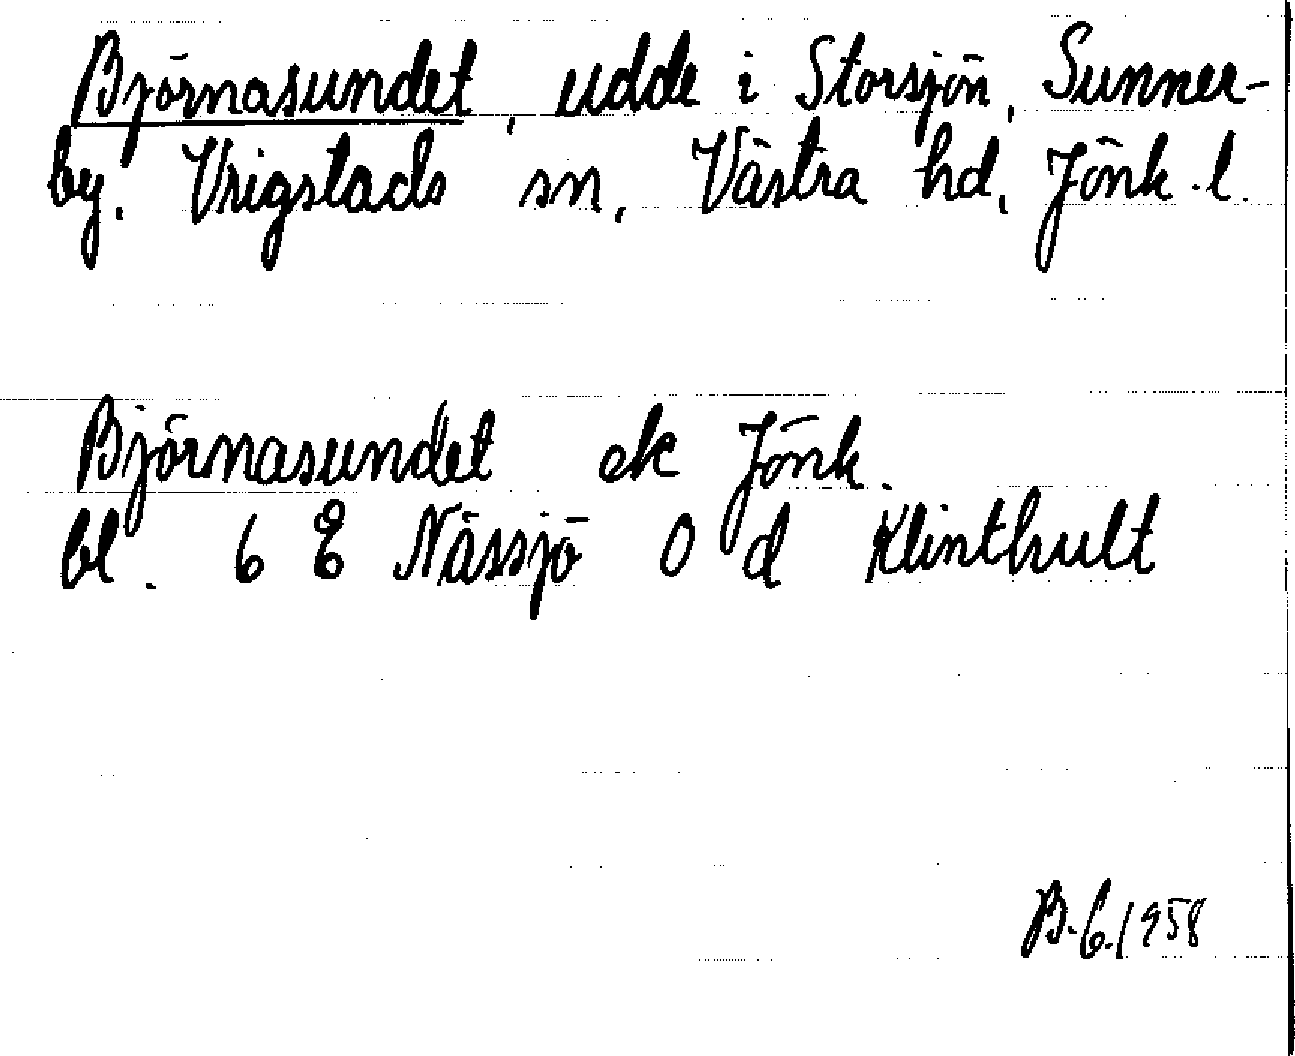 Björnasundet, udde i Storsjön, Sunner-
by, Vrigstads sn, Västra hd, Jönk. l.
Björnasundet ek Jönk.
bl. 6 E Nässjö 0 d Klinthult
B.G. 1958